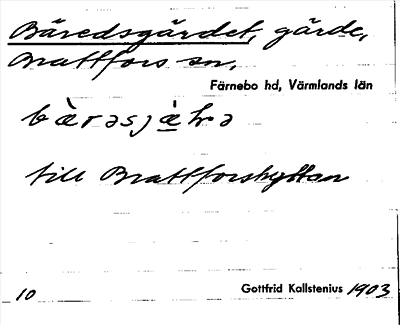 Båredsgärdet, gärde,
Brattfors sn.
Färnebo hd, Värmlands län
till Brattforshyttan
10
Gottfrid Kallstenius 1903